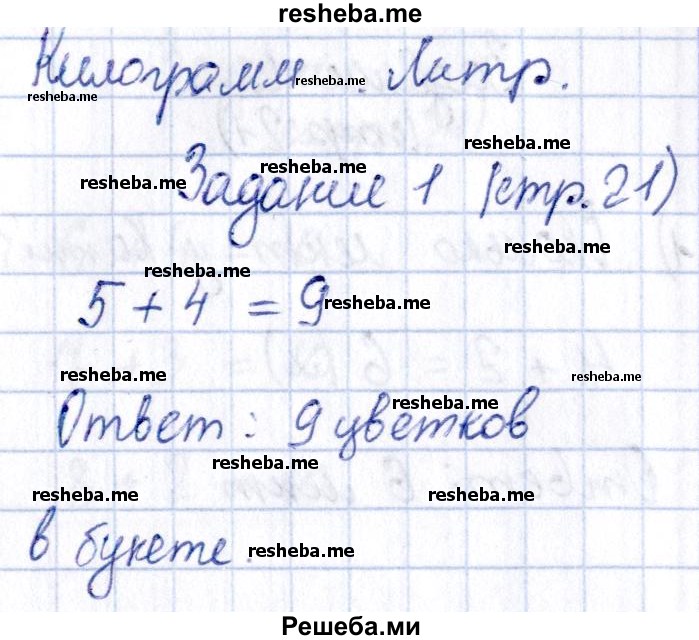 resheba.me
Килограмм. Литр.
resheba.me
resheba.me
resheba.me
resheba.me
resheba.me
Задание 1 (стр. 21)
resheba.me
resheba.me
5 + 4 = 9
resheba.me
resheba.me
resheba.me
resheba.me
Ответ: 9 цветков
resheba.me
resheba.me
resheba.me
в букете.
resheba.me
Решеба.ми